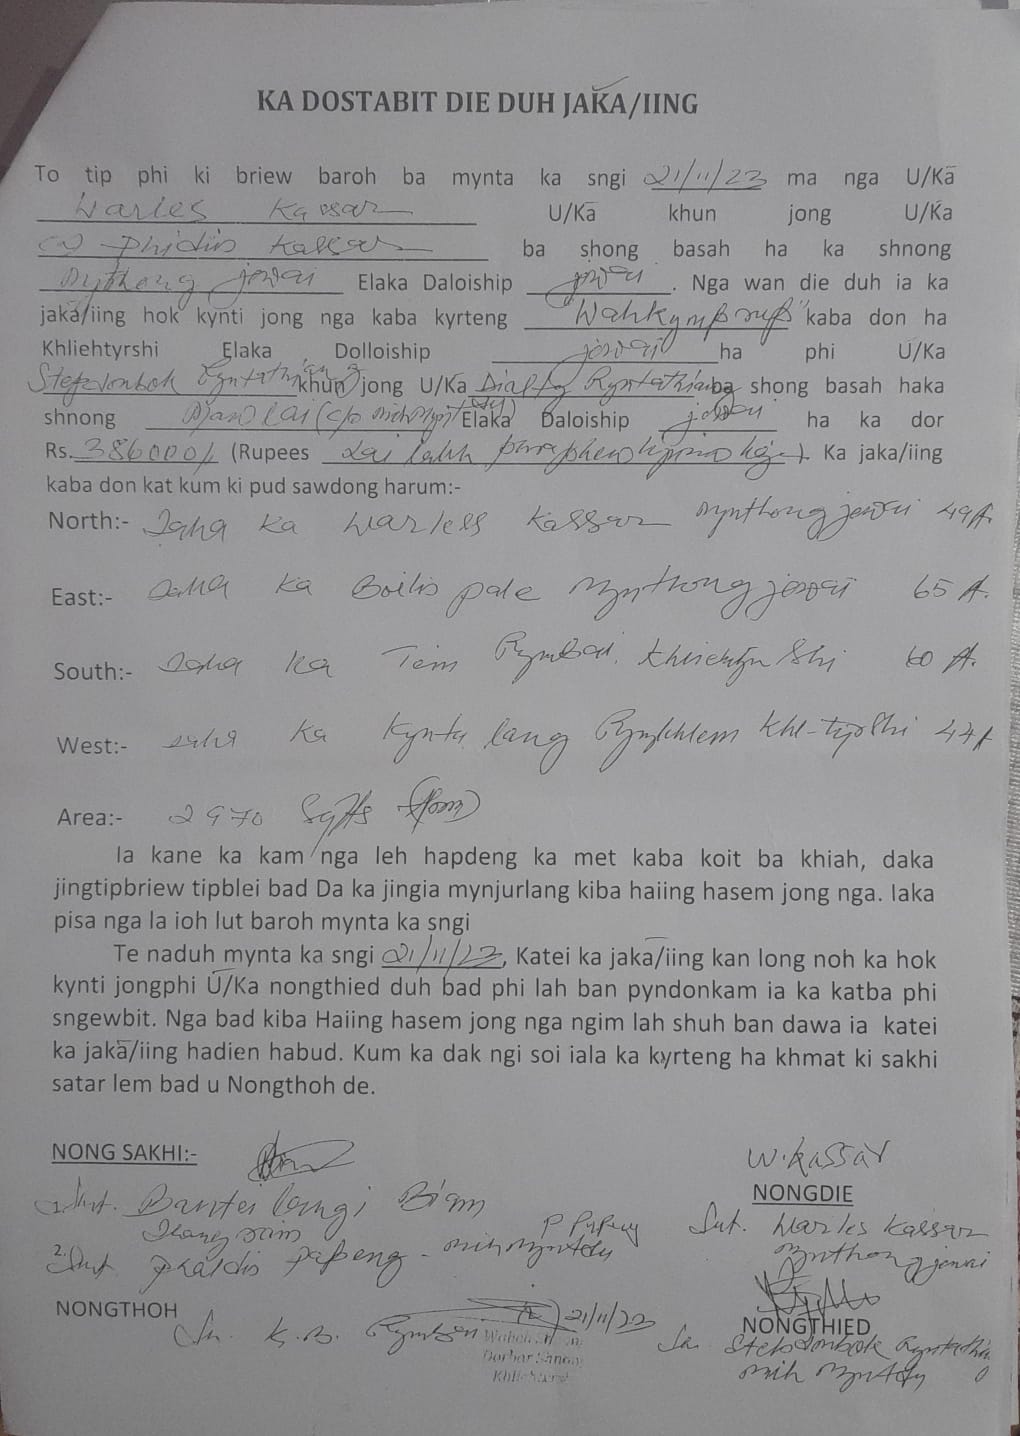 KA DOSTABIT DIE DUH JAKA/IING
To tip phi ki briew baroh ba mynta ka sngi 21/11/23 ma nga U/Kā
Warles Kassar U/Kā khun jong U/Ka
(L) Phidis Kassar ba shong basah ha ka shnong
Mynthong Jowai Elaka Daloiship Jowai. Nga wan die duh ia ka
jaka/iing hok kynti jong nga kaba kyrteng kaba don ha
Khliehtyrshi Elaka Dolloiship Jowai ha phi U/Ka
khun jong U/Ka Ryntathiang ba shong basah haka
shnong Elaka Daloiship Jowai ha ka dor
Rs. 386000/- (Rupees Lai lakh ). Ka jaka/iing
kaba don kat kum ki pud sawdong harum:-
North:- Jaka Ka Warless Kassar Mynthong Jowai 49 ft.
East:- Jaka Ka Boilis pale Mynthong Jowai 65 ft.
South:- Jaka Ka Tem Rymbai. 60 ft.
West:- Jaka Ka Kynta lang Rymkhlem Khl-tyrshi 44 ft
Area:- 2970 Sqfts
Ia kane ka kam nga leh hapdeng ka met kaba koit ba khiah, daka
jingtipbriew tipblei bad Da ka jingia mynjurlang kiba haiing hasem jong nga. Iaka
pisa nga la ioh lut baroh mynta ka sngi
Te naduh mynta ka sngi 21/11/23, Katei ka jaka/iing kan long noh ka hok
kynti jongphi U/Ka nongthied duh bad phi lah ban pyndonkam ia ka katba phi
sngewbit. Nga bad kiba Haiing hasem jong nga ngim lah shuh ban dawa ia katei
ka jakā/iing hadien habud. Kum ka dak ngi soi iala ka kyrteng ha khmat ki sakhi
satar lem bad u Nongthoh de.
NONG SAKHI:-
W. Kassar
NONGDIE
1. Sut. Bantei Biam
Sut. Warles Kassar
Mynthong Jowai
P Papeng
2. Sut Papeng - Mihmyntdu
NONGTHOH
Sn. K.B. 21/11/23
NONGTHIED
Waheh Shnong
Dorbar Shnong
Ryntathiang
Mih Myntdu